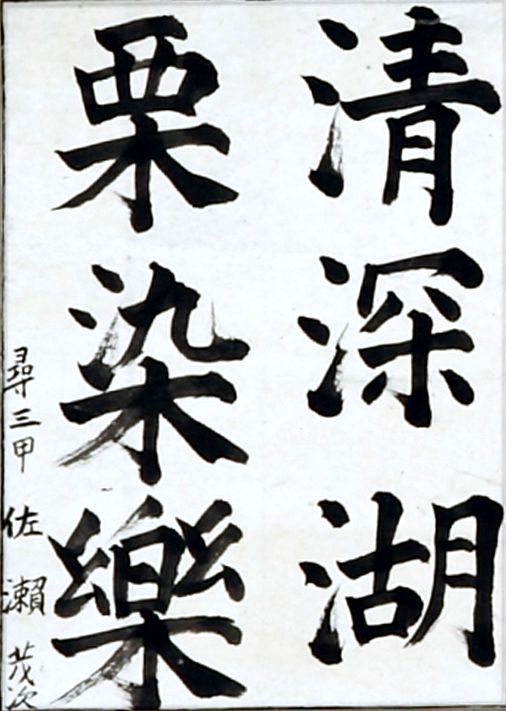 清深湖
栗染樂
尋三甲 佐瀬茂次